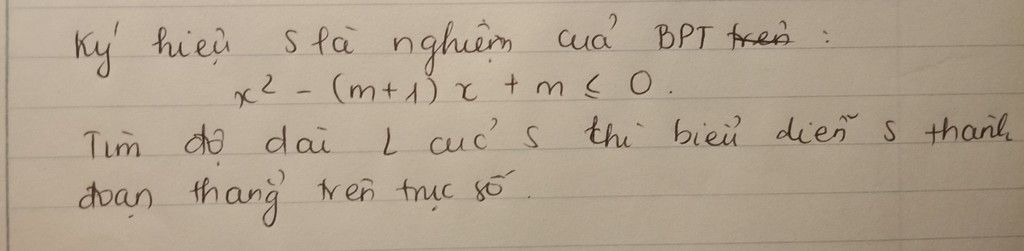 Ký hiệu S là nghiệm cuả BPT trên :
x² - (m+1) x + m ≤ 0.
Tìm độ dài L cuả S thi biểu diễn S thành
đoạn thẳng trên trục số.